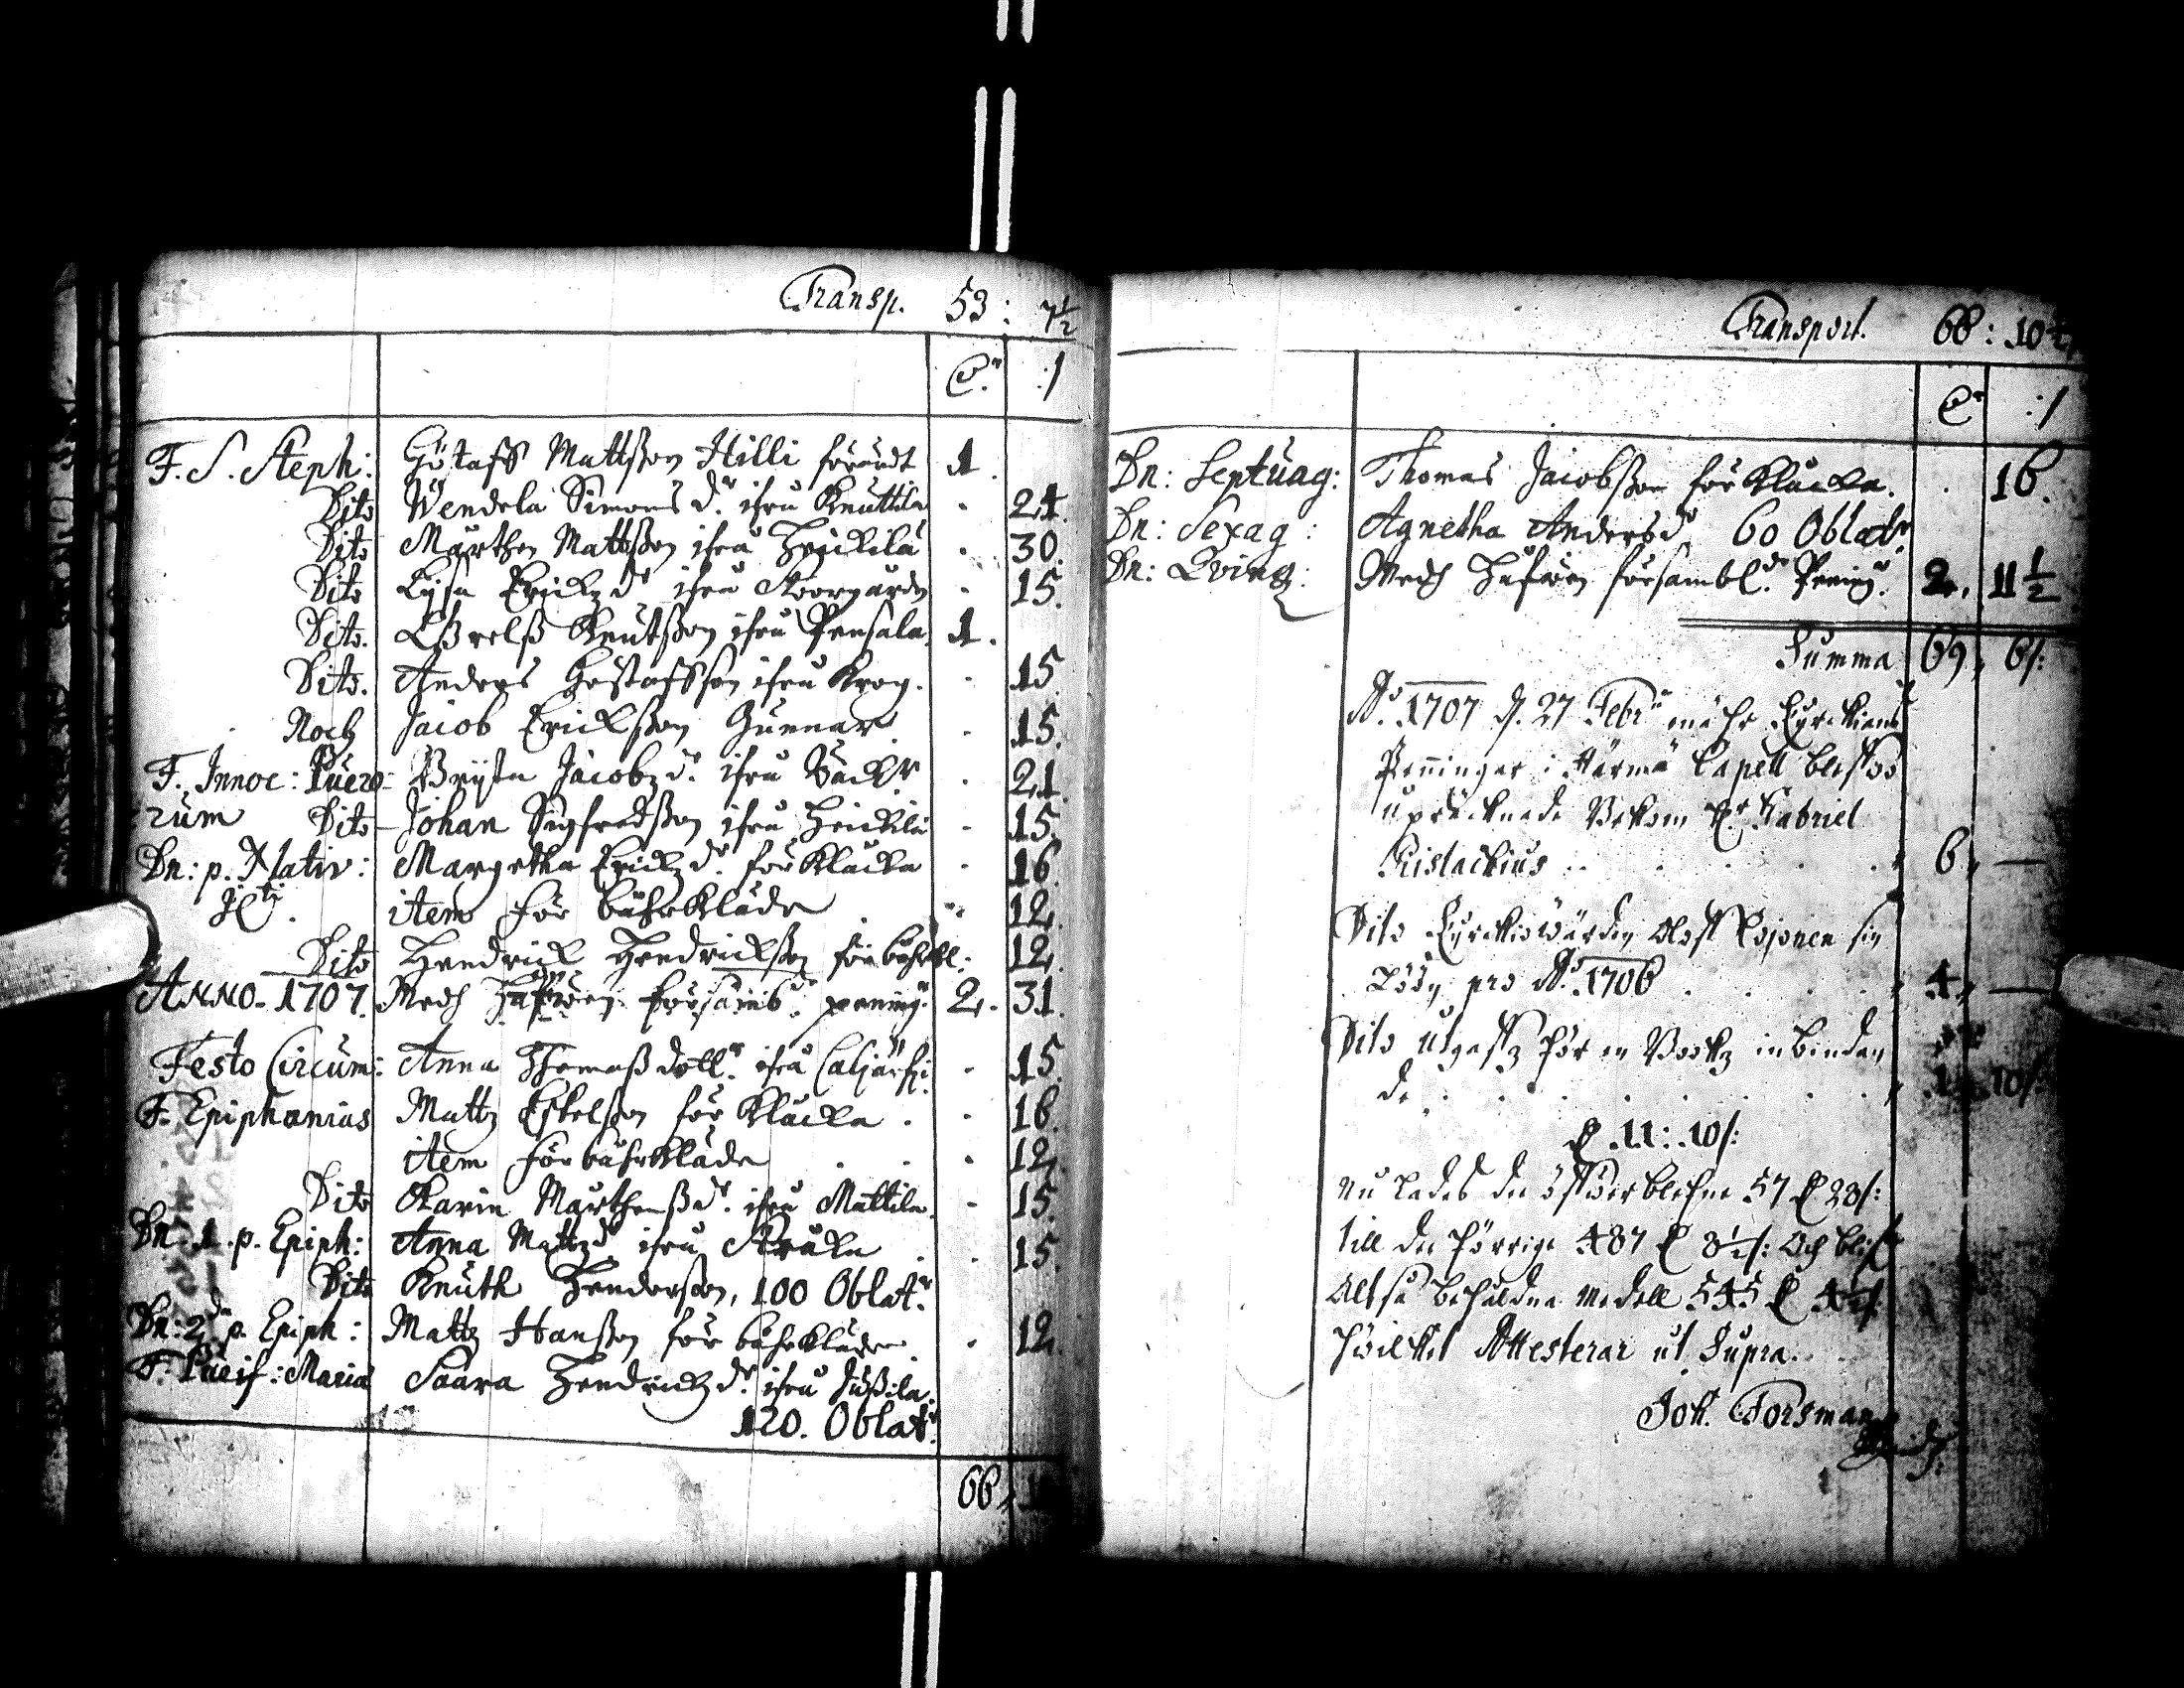 Transp. 53: 7½
F. S. Steph: Göstaff Mattsson Hilli förärdt 1.
Dito Wendela Simons dr. ifrå Knuttila . 24.
Dito Mårthen Mattsson ifrå Heickilä . 30.
Dito Lysa Erickz dr ifrå Storgården . 15.
Dito. Knutsson ifrå Pensala. 1.
Dito. Anders Göstaffsson ifrå Krog. . 15
Noch Jacob Ericksson Gunnar . 15.
F. Innoc: Puero- Bryta Jacobz dr. ifrå Back . 21.
rum Dito Johan Sigfredsson ifrå Heickilä . 15.
Dn: p. Nativ: Margetha Erickz dr. för Klåcka . 16.
item för båhrkläde . 12.
Dito Hendrick Hendricksson för båhrkl: 12.
ANNO 1707. Medh Håfwen församb. pening. 2. 31.
Festo Circum: Anna Thomass dott. ifrå . 15.
F. Epiphanias Mattz Eskelsson för Klåcka . . 16.
item för båhrkläde . . . 12.
Dito Karin Mårthenss dr. ifrå Mattila. . 15.
Dn: 1. p. Epiph: Anna Mattz dr ifrå . . 15.
Dito Knuth Henderson, 100 Oblat.
Dn: 2da p. Epiph: Mattz Hansson för båhrkläde . 12.
F. Purif: Mariæ Saara Hendrickz dr. ifrå Jussila.
120. Oblat.
66,
Transport. 66: 10½
Dn: Septuag: Thomas Jacobsson för Klåcka. . 16.
Dn: Sexag: Agnetha Andersdr 60 Oblatr.
Dn: Qving: Medh Håfwen försambl. Pening. 2. 11½
Summa 69, 6/:
Ao. 1707 d. 27 Febr. Kyrckians
Penningar i Härmä Capell blefwo
upräcknade Gabriel
Peistackius . . . 6, —
Dito Kyrckiowärden Oloff Pojonen sin
Löön pro Ao. 1706 . . . 4, —
Dito utgafz för en Book inbindan
de . . . . 1, 10/:
11: 10/:
Nu lades de öfwerblefne 57 28/:
till de förrige 487 8½/: Och blef
altså behåldne medell 545 4½/:
hwilket Attesterar ut Supra.
Joh. Forsman